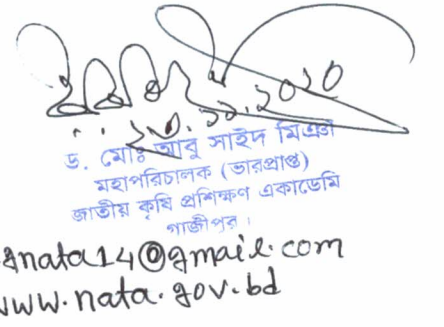 ২৩.১১.২০২০
ড. মোঃ আবু সাইদ মিঞা
মহাপরিচালক (ভারপ্রাপ্ত)
জাতীয় কৃষি প্রশিক্ষণ একাডেমি
গাজীপুর।
gnata14@gmail.com
www.nata.gov.bd